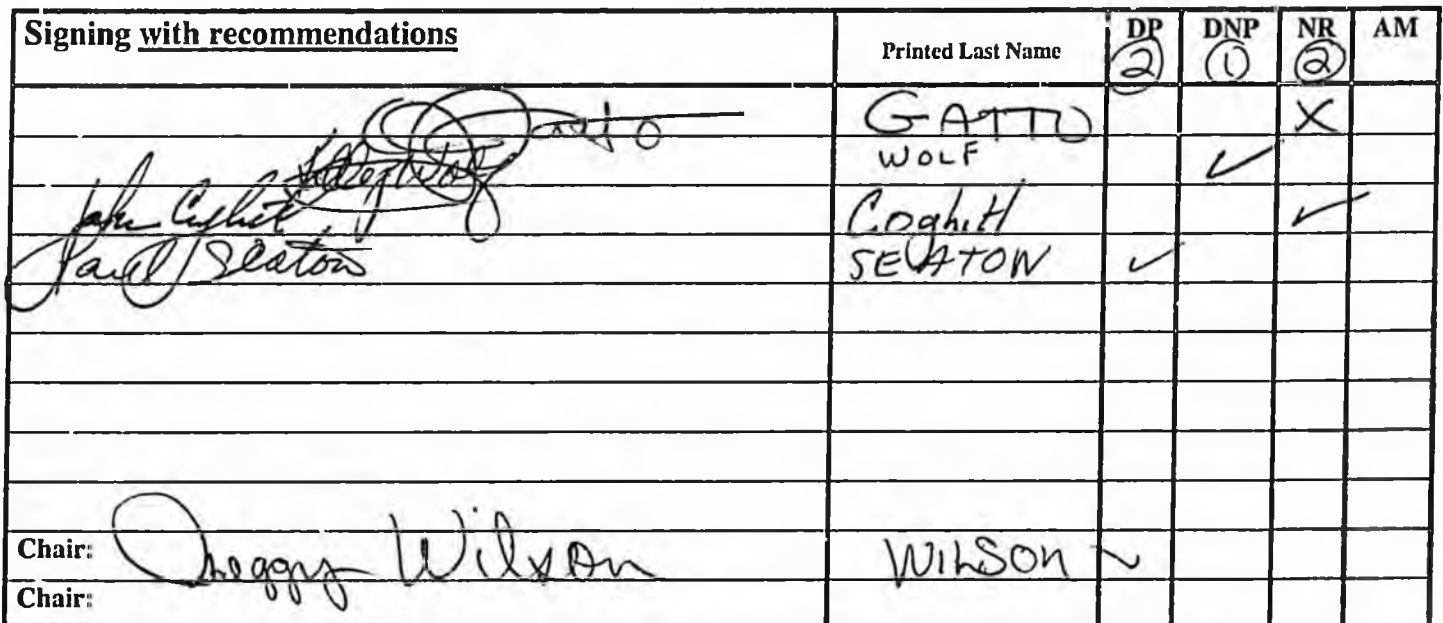 Signing with recommendations Printed Last Name DP DNP NR AM
2 1 2
Gatto GATTO X
Kelly Wolf WOLF ✓
John Coghill Coghill ✓
Paul Seaton SEATON ✓
Chair: Peggy Wilson WILSON ✓
Chair: